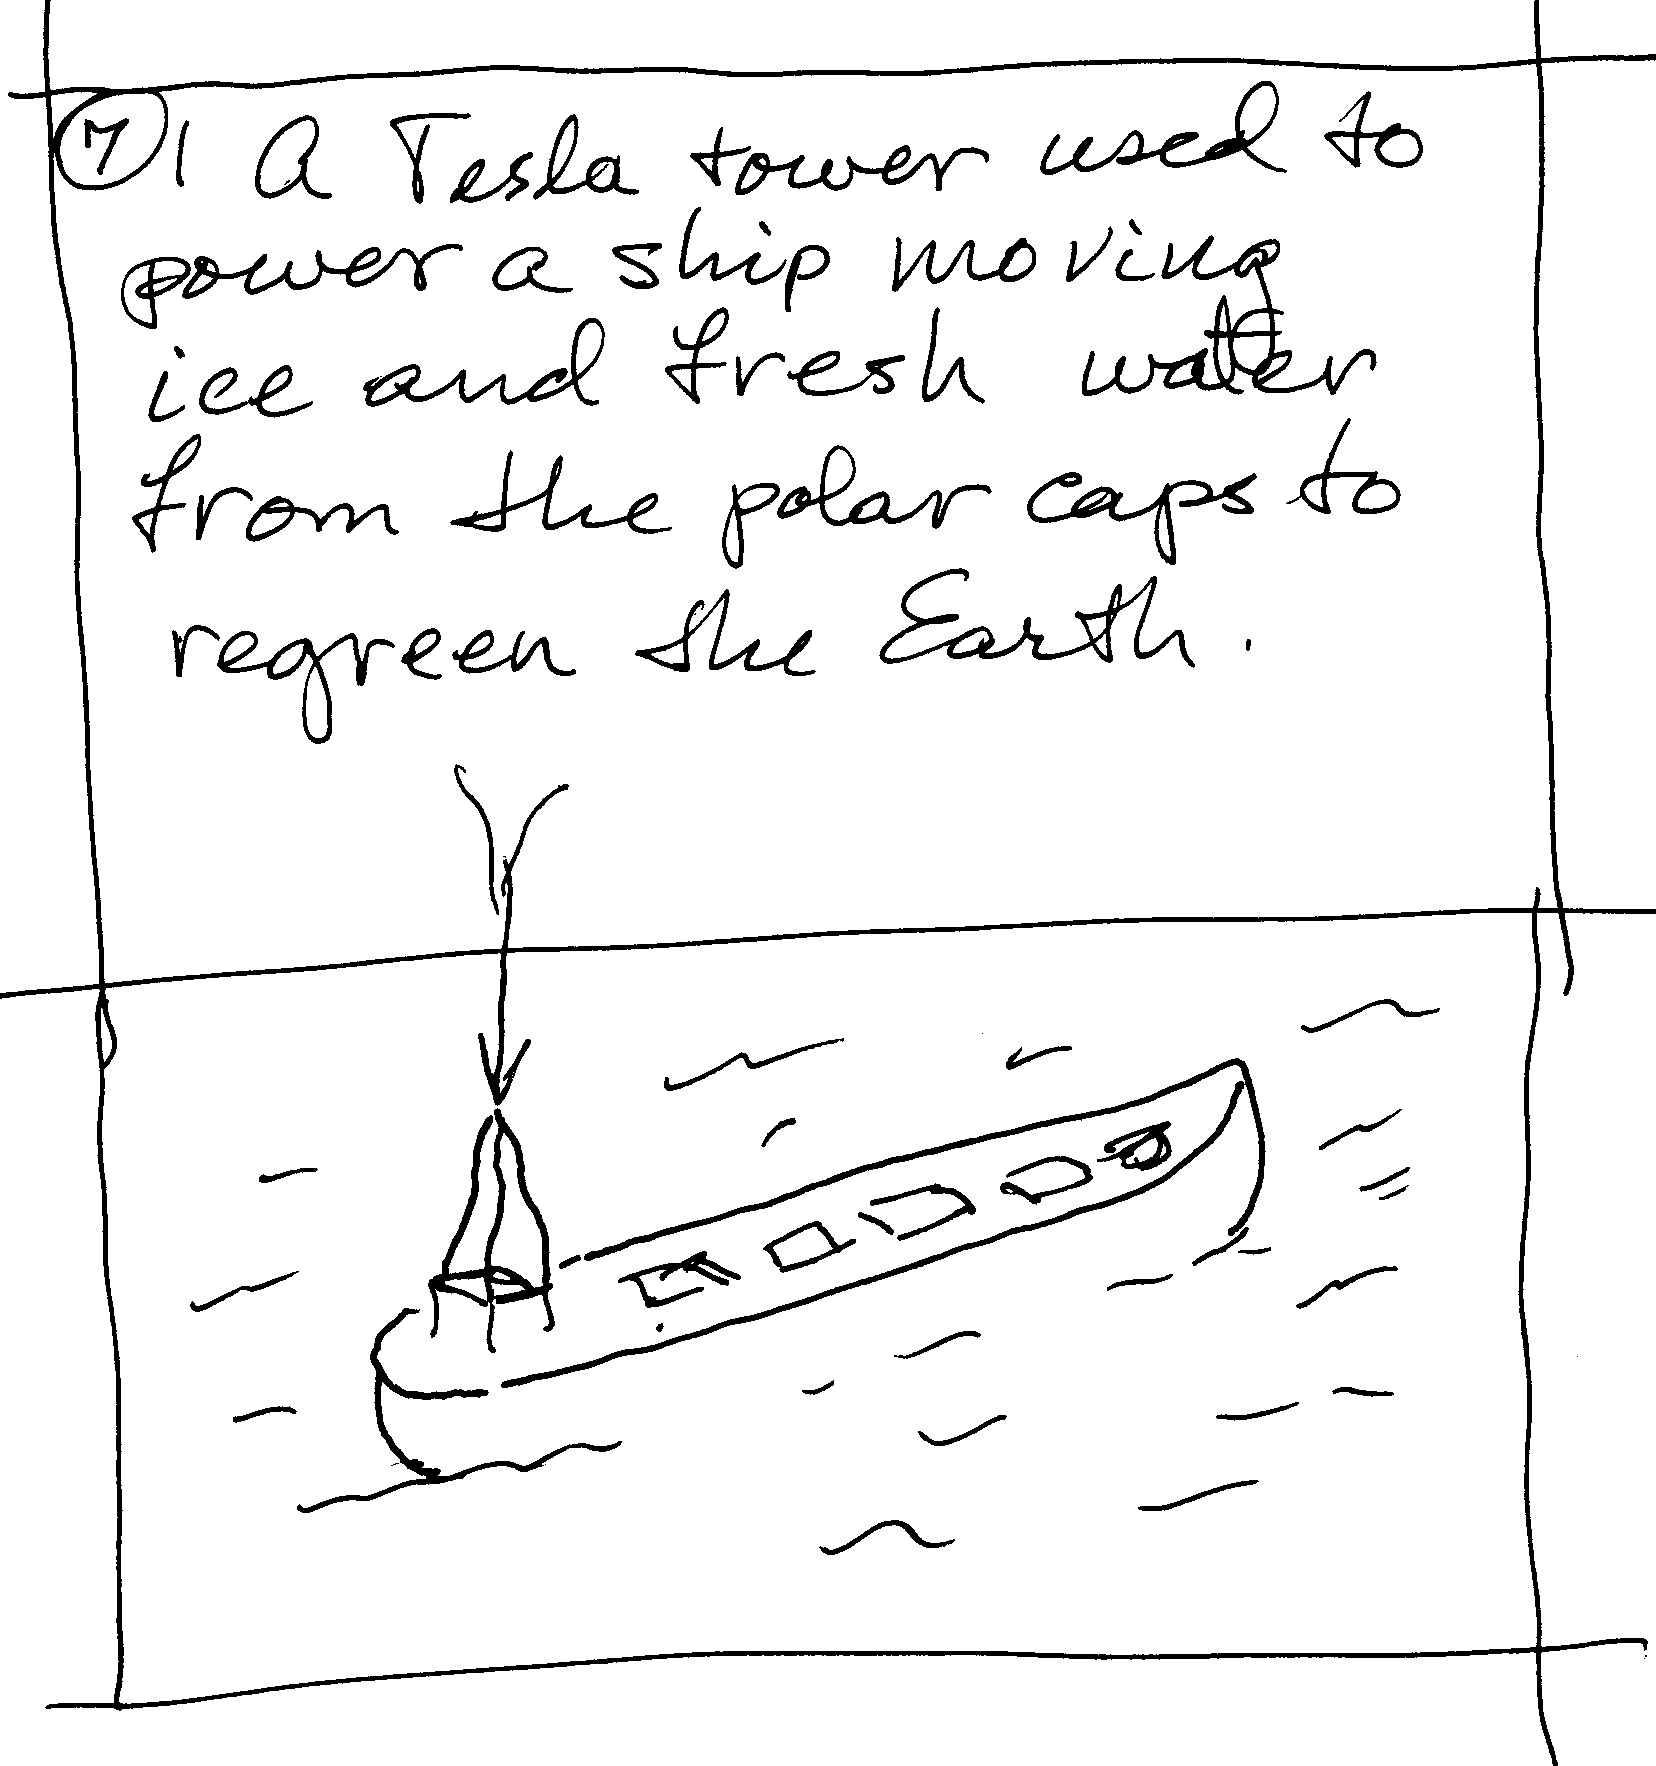 7 | A Tesla tower used to
power a ship moving
ice and fresh water
from the polar caps to
regreen the Earth.